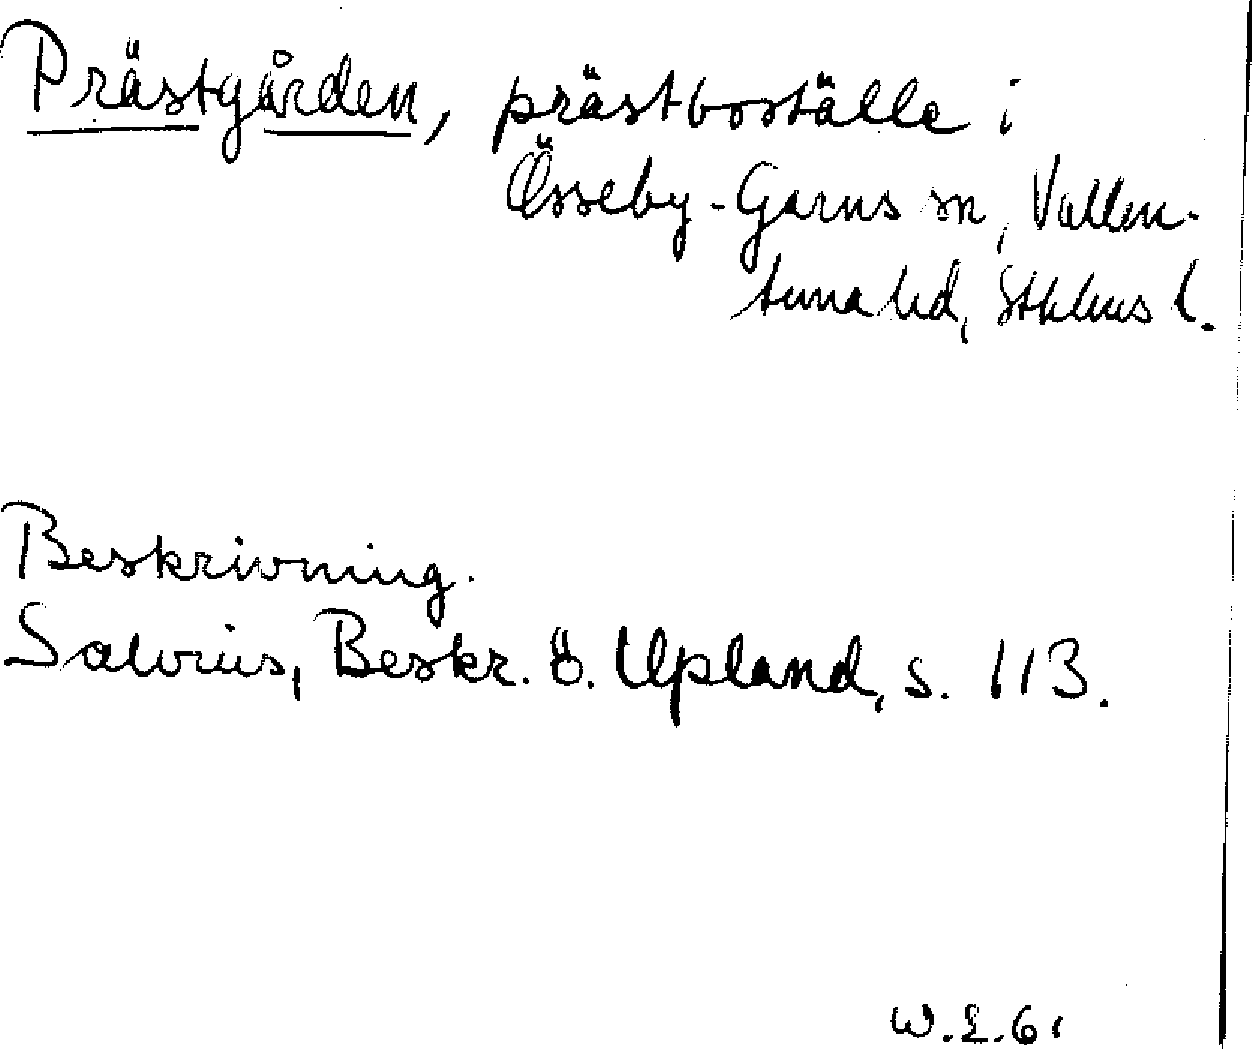 Prästgården, prästboställe i
Össeby-Garns sn, Vallen-
tuna hd, Sthlms l.
Beskrivning.
Salvius, Beskr. ö. Upland, s. 113.
W.L.61